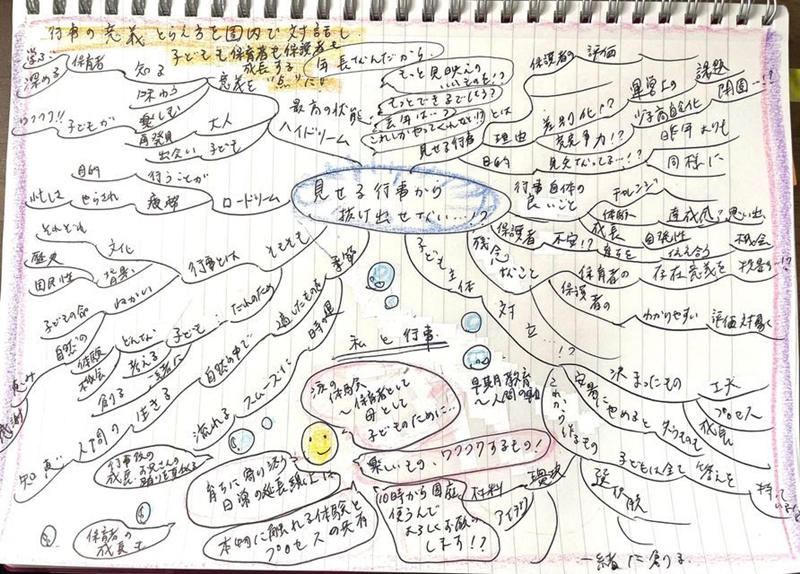 行事の意義 とらえ方を園内で対話し
子ども 保育者も保護者も
成長する
意義を "点"に
学ぶ 保育者 知る
深める
味わう
楽しむ 大人
ワクワク!! 子どもが
再発見
出会い 子ども
最高の状態
ハイドリーム
年長さんだから
もっと見映えの
いいものを!?
もっとできるでしょう?
去年は…?
これしかやってくれないの!? とは
見せる行事
理由
目的
保護者の 評価
運営上の 課題
閉園…!?
差別化!?
競争力!?
少子高齢化
昨年よりも
見失ってる…!?
同様に
目的 行うことが
忙しさ やらされ 疲弊 ロードリーム
見せる行事から
抜け出せない…!?
行事自体の
良いこと
チャレンジ
体験
達成感 思い出
成長 自己発揮 機会
伝え合う
残念なこと
保護者 不安!?
保育者の 存在意義を
保護者の わかりやすい 評価対象
子ども主体
対立…!?
それぞれ
歴史 文化
国民性 背景
行事とは そもそも
季節
子どもの命 ねがい
だれのため
自然の 体験 どんな 子ども
機会 考える
一緒に
創る
自然の中で
適したものを
時々の
人間の 生きる
知恵
流れる スムーズに
私と行事
涙の体験
〜保育者として
母として
子どものために…
早期教育
〜人間の
楽しいもの、ワクワクするもの!
行事後の
成長・お兄さんの
踊りを真似る
育ちに寄り添う
日常の延長線上に
本物に触れる体験と
プロセスの共有
10時から園庭
使うんで
よろしくお願い
します!?
材料 環境
アイデア
保育者の
成長も
これから 作るもの
決まったもの 工夫
プロセス
安易にやめると 失うもの 成長
子どもは全て 答えを
持っている
選択肢
一緒に創る